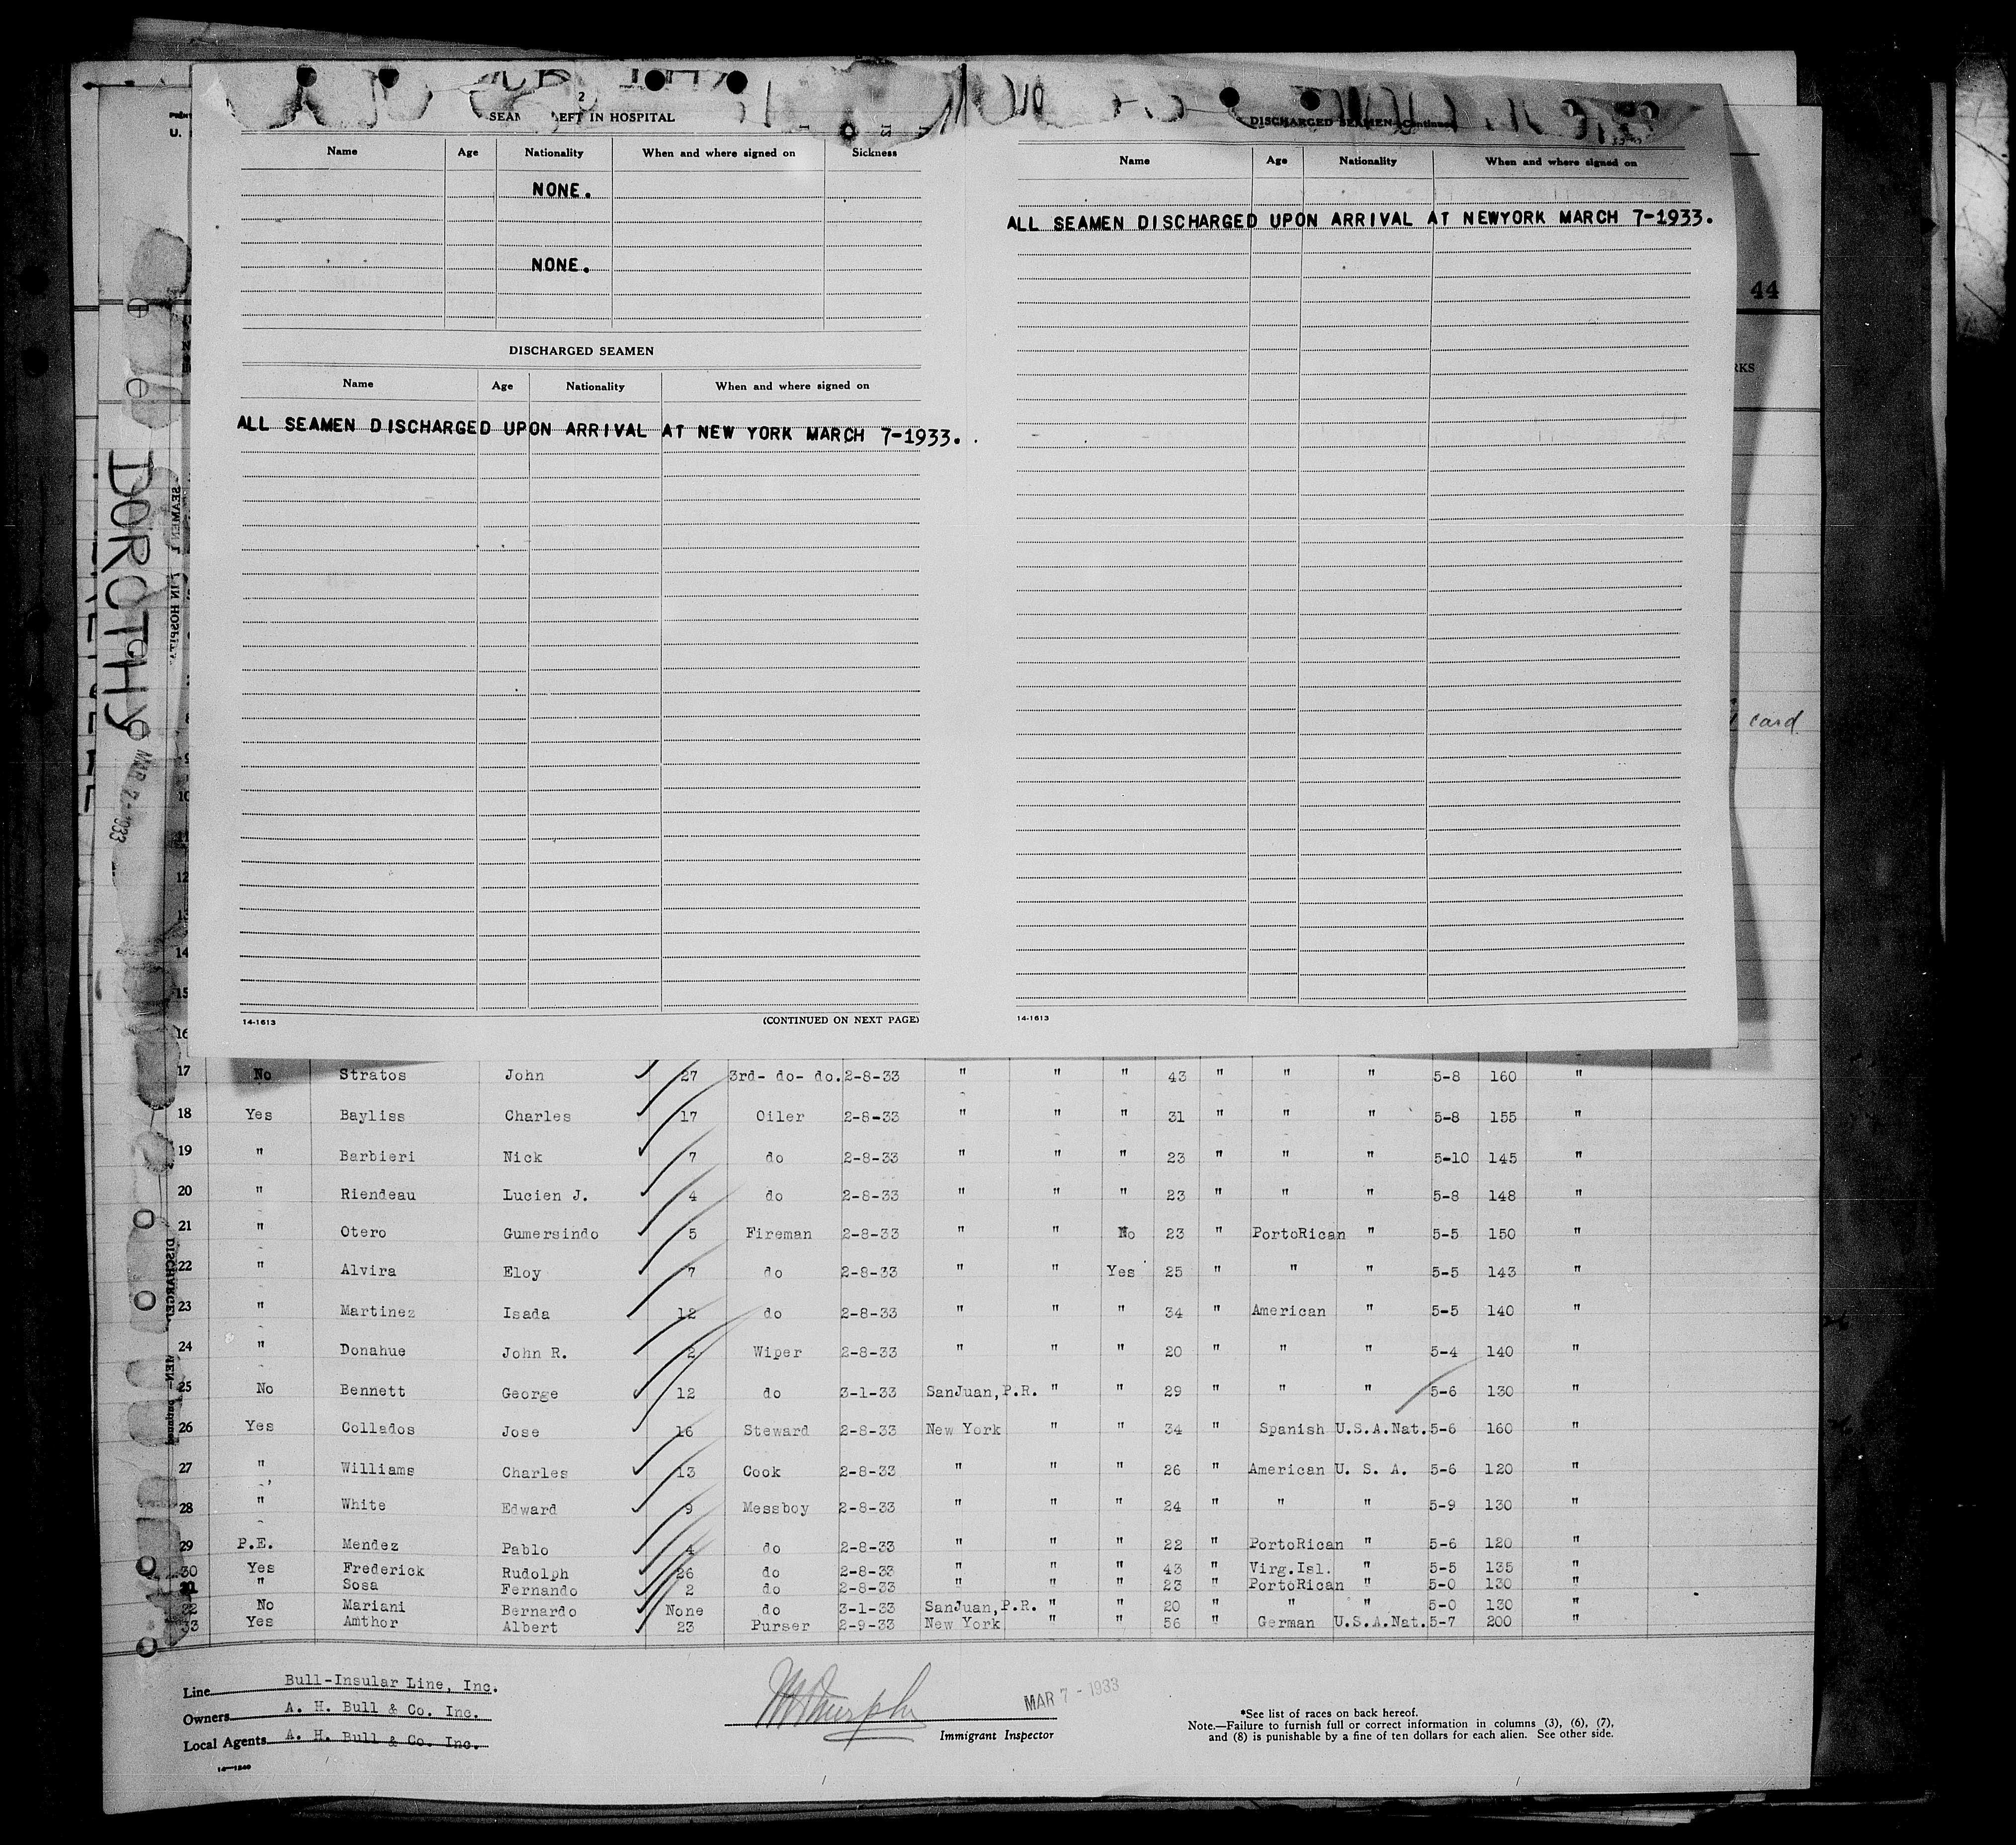 2
SEAM LEFT IN HOSPITAL
Name Age Nationality When and where signed on Sickness
NONE.
NONE.
DISCHARGED SEAMEN
Name Age Nationality When and where signed on
ALL SEAMEN DISCHARGED UPON ARRIVAL AT NEW YORK MARCH 7-1933.
14-1613 (CONTINUED ON NEXT PAGE)
DISCHARGED SEAMEN—Continued
Name Age Nationality When and where signed on
ALL SEAMEN DISCHARGED UPON ARRIVAL AT NEWYORK MARCH 7-1933.
14-1613
44
RKS
card
DOROTHY
MAR 7-1933
10
12
13
14
15
16
17 No Stratos John 27 3rd- do- do. 2-8-33 " " " 43 " " " 5-8 160 "
18 Yes Bayliss Charles 17 Oiler 2-8-33 " " " 31 " " " 5-8 155 "
19 " Barbieri Nick 7 do 2-8-33 " " " 23 " " " 5-10 145 "
20 " Riendeau Lucien J. 4 do 2-8-33 " " " 23 " " " 5-8 148 "
21 " Otero Gumersindo 5 Fireman 2-8-33 " " No 23 " PortoRican " 5-5 150 "
22 " Alvira Eloy 7 do 2-8-33 " " Yes 25 " " " 5-5 143 "
23 " Martinez Isada 12 do 2-8-33 " " " 34 " American " 5-5 140 "
24 " Donahue John R. 2 Wiper 2-8-33 " " " 20 " " " 5-4 140 "
25 No Bennett George 12 do 3-1-33 SanJuan, P.R. " " 29 " " " 5-6 130 "
26 Yes Collados Jose 16 Steward 2-8-33 New York " " 34 " Spanish U.S.A.Nat. 5-6 160 "
27 " Williams Charles 13 Cook 2-8-33 " " " 26 " American U. S. A. 5-6 120 "
28 " White Edward 9 Messboy 2-8-33 " " " 24 " " " 5-9 130 "
29 P.E. Mendez Pablo 4 do 2-8-33 " " " 22 " PortoRican " 5-6 120 "
30 Yes Frederick Rudolph 26 do 2-8-33 " " " 43 " Virg.Isl. " 5-5 135 "
31 " Sosa Fernando 2 do 2-8-33 " " " 23 " PortoRican " 5-0 130 "
32 No Mariani Bernardo None do 3-1-33 SanJuan, P.R. " " 20 " " " 5-0 130 "
33 Yes Amthor Albert 23 Purser 2-9-33 New York " " 56 " German U.S.A.Nat. 5-7 200 "
Line Bull-Insular Line, Inc.
Owners A. H. Bull & Co. Inc.
Local Agents A. H. Bull & Co. Inc.
14-1240
MAR 7 - 1933
Immigrant Inspector
*See list of races on back hereof.
Note.—Failure to furnish full or correct information in columns (3), (6), (7),
and (8) is punishable by a fine of ten dollars for each alien. See other side.